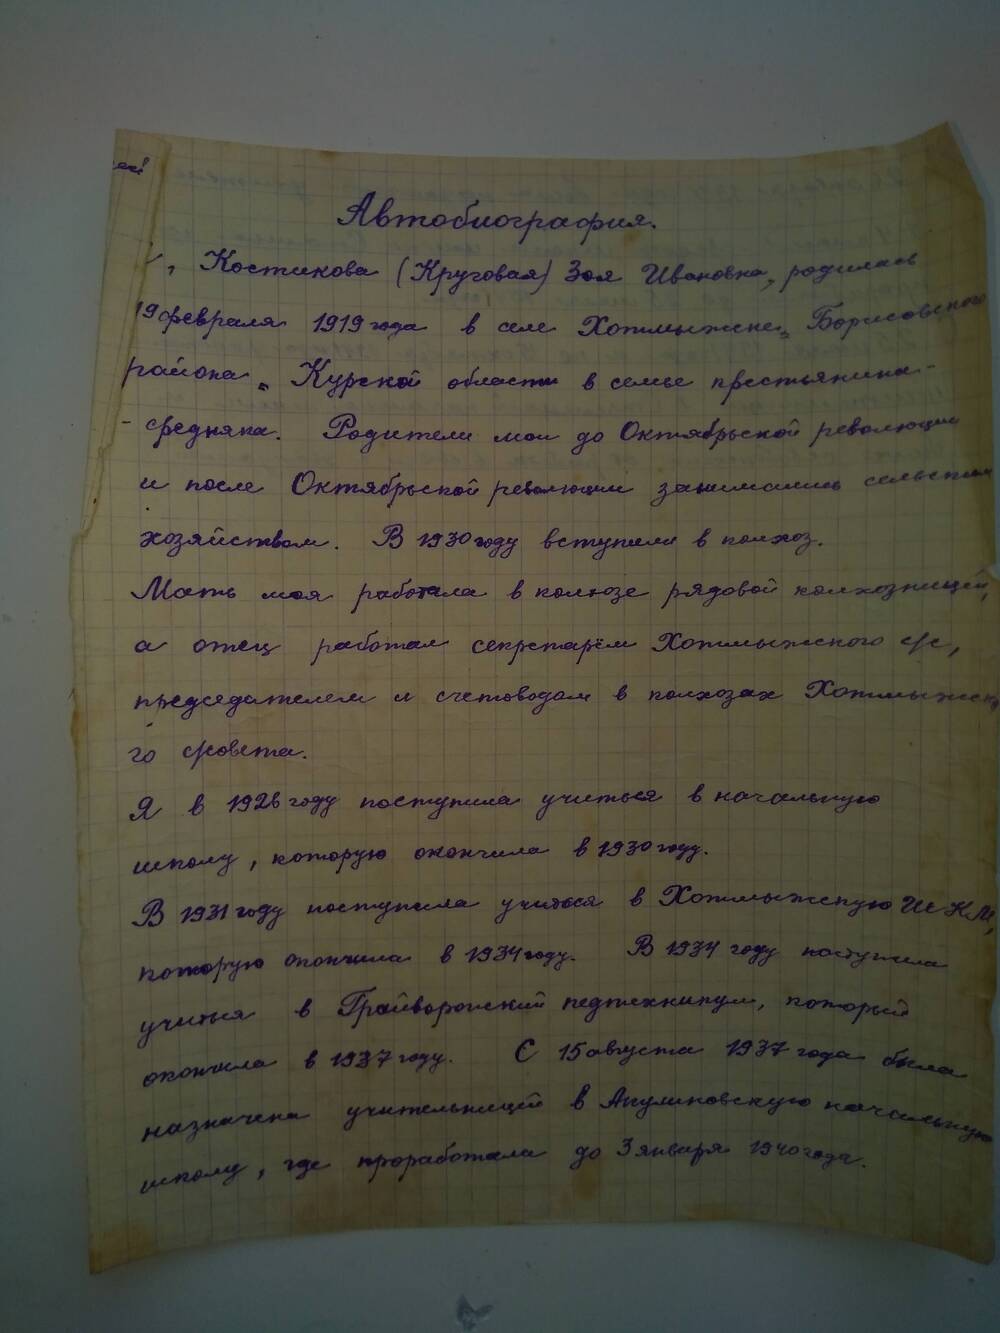 Автобиография.
, Костикова (Круговая) Зоя Ивановна, родилась
19 февраля 1919 года в селе Хотмыжске, Борисовского
района, Курской области в семье крестьянина-
- средняка. Родители мои до Октябрьской революции
и после Октябрьской революции занимались сельским
хозяйством. В 1930 году вступили в колхоз.
Мать моя работала в колхозе рядовой колхозницей,
а отец работал секретарём Хотмыжского с/с,
председателем и счетоводам в колхозах Хотмыжско
го с/совета.
Я в 1926 году поступила учиться в начальную
школу, которую окончила в 1930 году.
В 1931 году поступила учиться в Хотмыжскую ШКМ,
которую окончила в 1934 году. В 1934 году поступила
учиться в Грайворонский педтехникум, который
окончила в 1937 году. С 15 августа 1937 года была
назначена учительницей в Акулиновскую начальную
школу, где проработала до 3 января 1940 года.